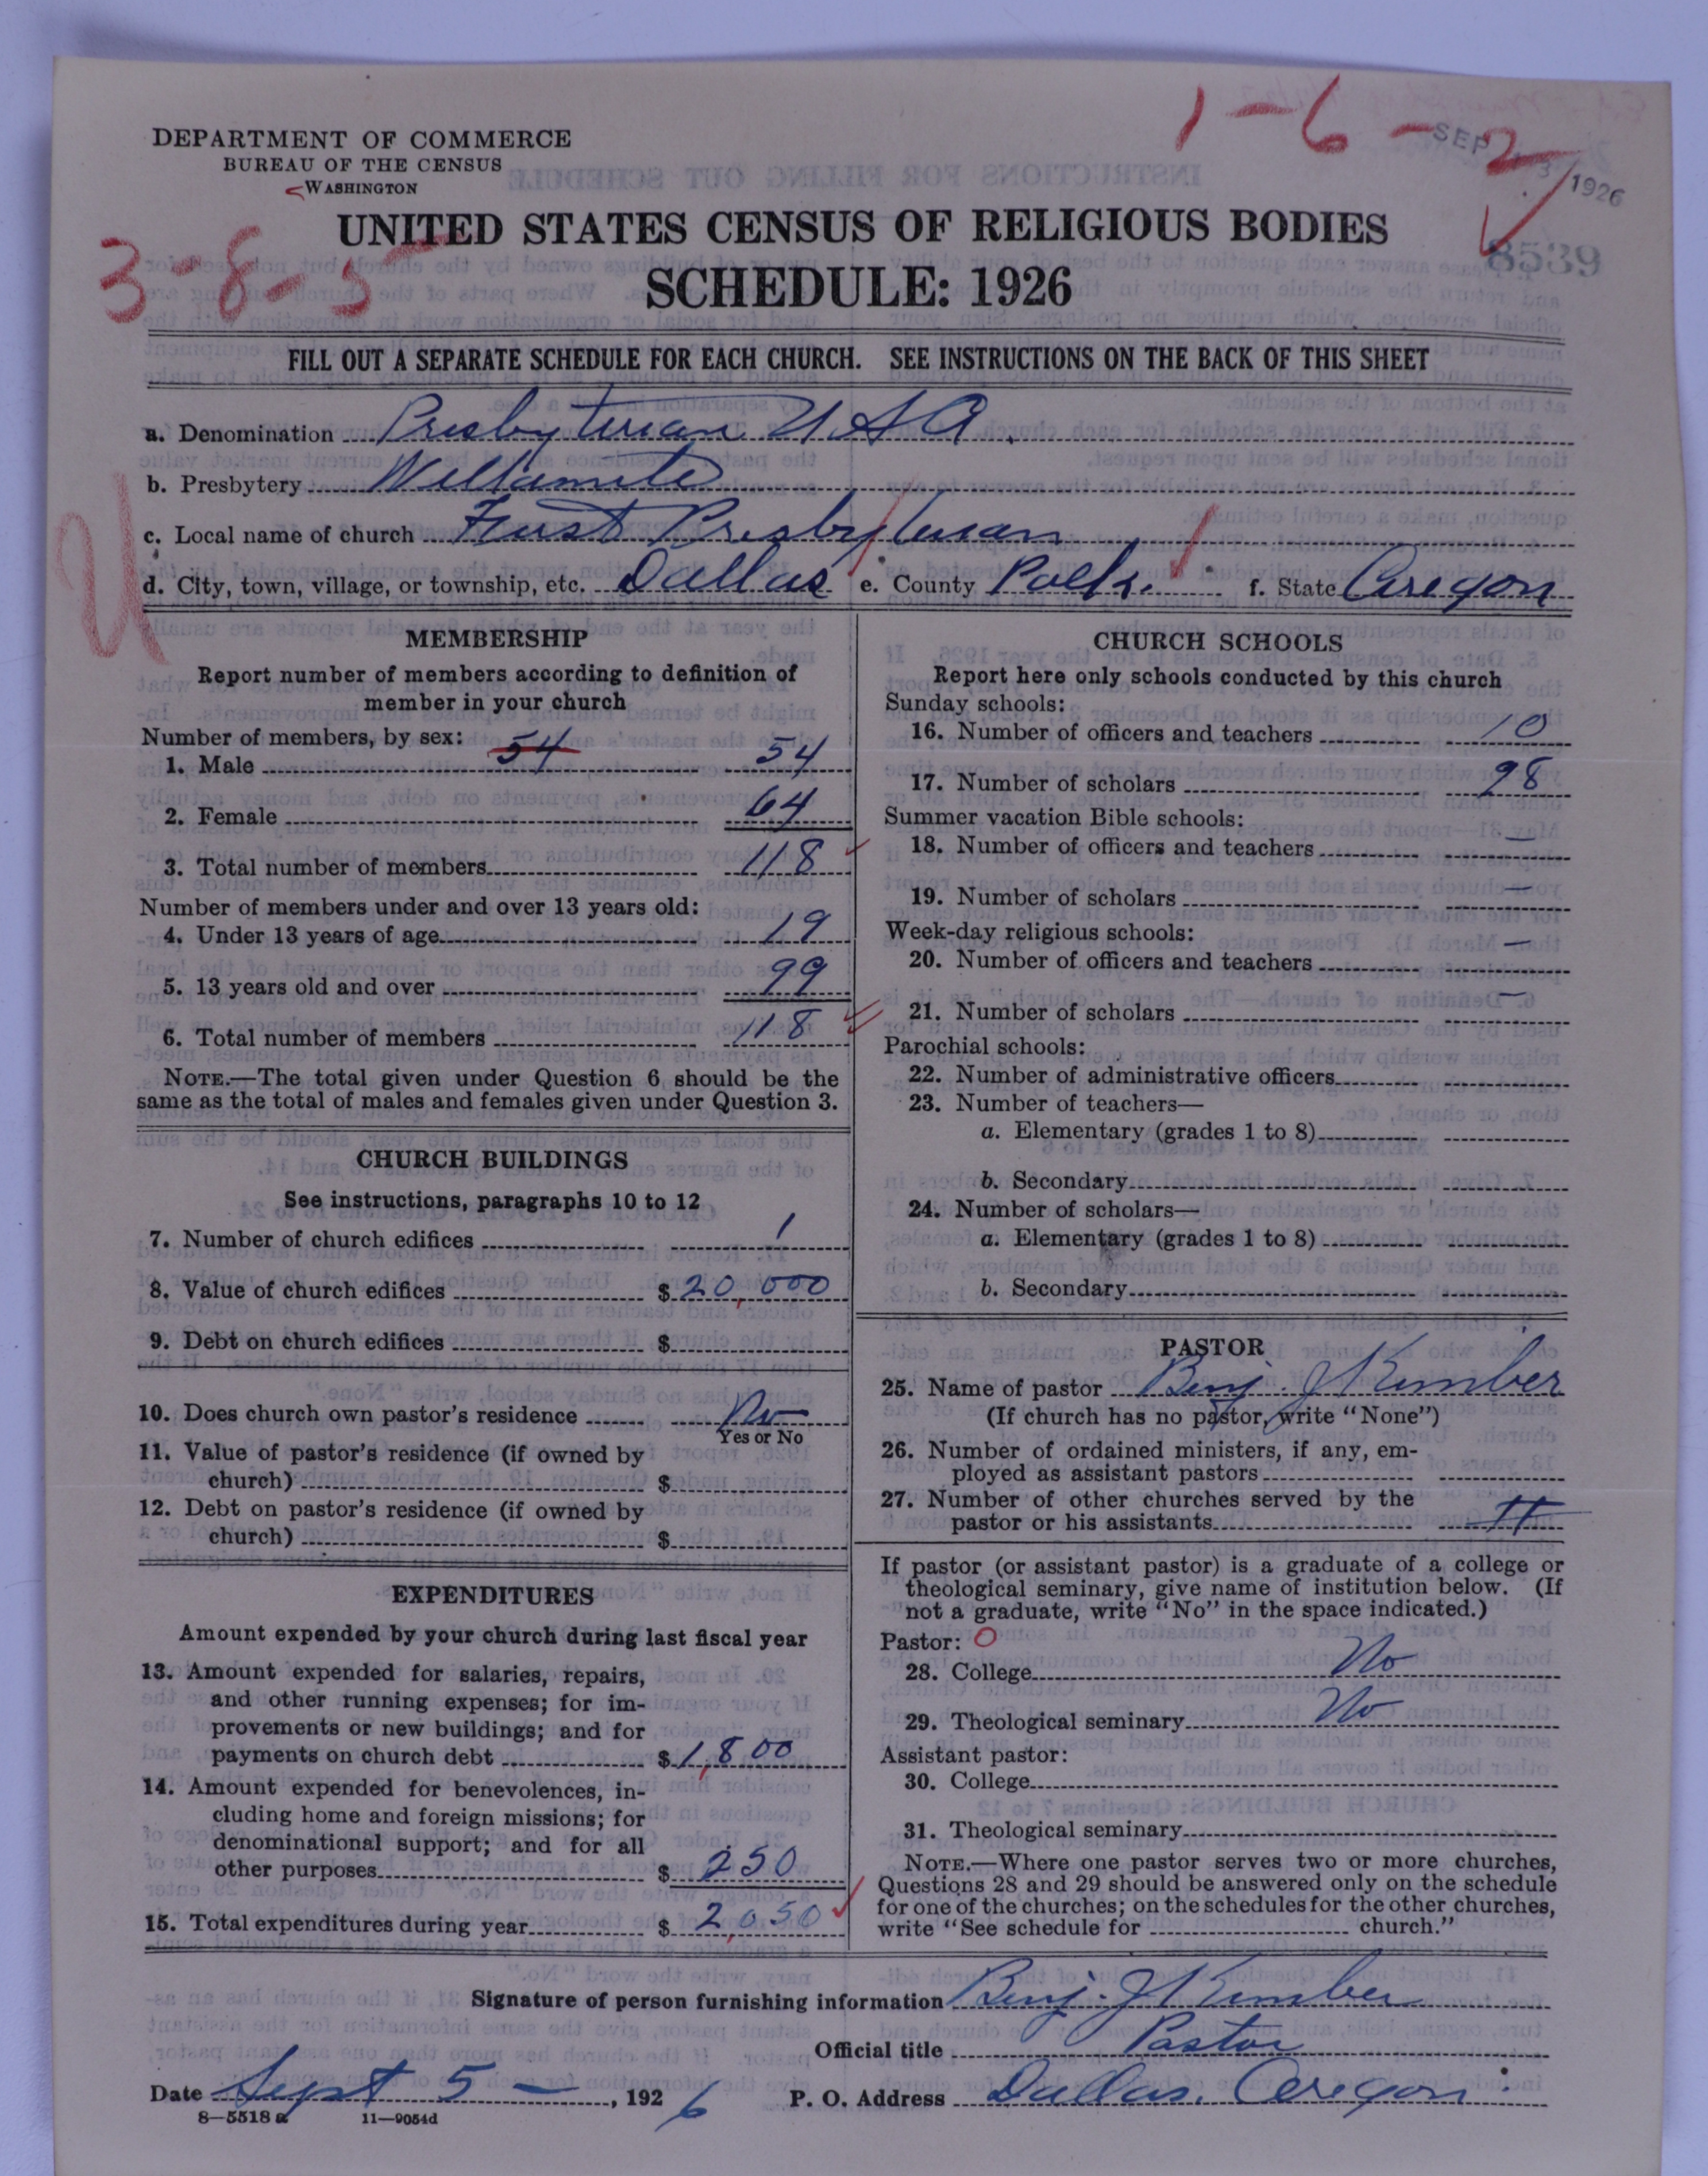 1-6-2
SEP 13 1926
8539
3-8-5
U
DEPARTMENT OF COMMERCE
BUREAU OF THE CENSUS
WASHINGTON
UNITED STATES CENSUS OF RELIGIOUS BODIES
SCHEDULE: 1926
FILL OUT A SEPARATE SCHEDULE FOR EACH CHURCH. SEE INSTRUCTIONS ON THE BACK OF THIS SHEET
a. Denomination Presbyterian U S A.
b. Presbytery Willamette
c. Local name of church First Presbyterian
d. City, town, village, or township, etc. Dallas e. County Polk. f. State Oregon
MEMBERSHIP
Report number of members according to definition of
member in your church
Number of members, by sex: 54
1. Male 54
2. Female 64
3. Total number of members 118
Number of members under and over 13 years old:
4. Under 13 years of age 19
5. 13 years old and over 99
6. Total number of members 118
NOTE.—The total given under Question 6 should be the
same as the total of males and females given under Question 3.
CHURCH BUILDINGS
See instructions, paragraphs 10 to 12
7. Number of church edifices 1
8. Value of church edifices $ 20,000
9. Debt on church edifices $
10. Does church own pastor's residence No
Yes or No
11. Value of pastor's residence (if owned by
church) $
12. Debt on pastor's residence (if owned by
church) $
EXPENDITURES
Amount expended by your church during last fiscal year
13. Amount expended for salaries, repairs,
and other running expenses; for im-
provements or new buildings; and for
payments on church debt $ 1,800
14. Amount expended for benevolences, in-
cluding home and foreign missions; for
denominational support; and for all
other purposes $ 250
15. Total expenditures during year $ 2,050
CHURCH SCHOOLS
Report here only schools conducted by this church
Sunday schools:
16. Number of officers and teachers 10
17. Number of scholars 98
Summer vacation Bible schools:
18. Number of officers and teachers —
19. Number of scholars —
Week-day religious schools:
20. Number of officers and teachers —
21. Number of scholars —
Parochial schools:
22. Number of administrative officers
23. Number of teachers—
a. Elementary (grades 1 to 8)
b. Secondary
24. Number of scholars—
a. Elementary (grades 1 to 8)
b. Secondary
PASTOR
25. Name of pastor Benj. J Kimber
(If church has no pastor, write "None")
26. Number of ordained ministers, if any, em-
ployed as assistant pastors
27. Number of other churches served by the
pastor or his assistants
If pastor (or assistant pastor) is a graduate of a college or
theological seminary, give name of institution below. (If
not a graduate, write "No" in the space indicated.)
Pastor: O
28. College No
29. Theological seminary No
Assistant pastor:
30. College
31. Theological seminary
NOTE.—Where one pastor serves two or more churches,
Questions 28 and 29 should be answered only on the schedule
for one of the churches; on the schedules for the other churches,
write "See schedule for church."
Signature of person furnishing information Benj. J Kimber
Official title Pastor
Date Sept 5 —, 1926 P. O. Address Dallas. Oregon.
8—5518 a 11—9054d